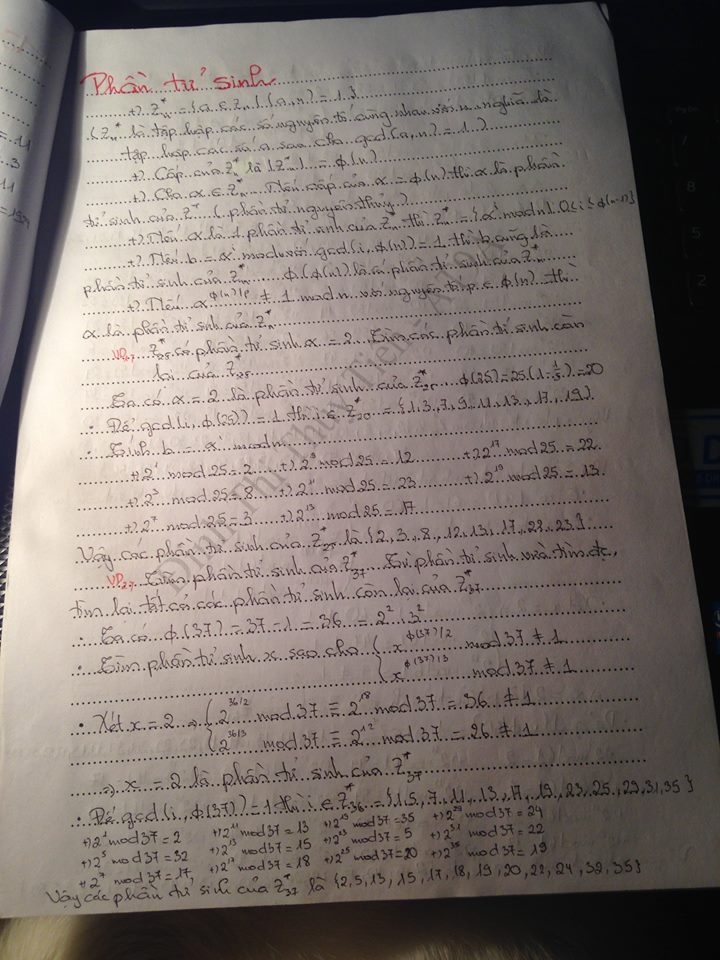 Phần tử sinh
+) Z*n = {a ∈ Zn | (a, n) = 1}
(Z*n là tập hợp các số nguyên tố cùng nhau với n, nghĩa là
tập hợp các số a sao cho gcd(a, n) = 1.)
+) Cấp của Z*n là |Z*n| = φ(n)
+) Cho α ∈ Z*n. Nếu cấp của α = φ(n) thì α là phần
tử sinh của Z*n (phần tử nguyên thủy)
+) Nếu α là 1 phần tử sinh của Z*n thì Z*n = {α^i mod n | 0 ≤ i ≤ φ(n-1)}
+) Nếu b = α^i mod n với gcd(i, φ(n)) = 1 thì b cũng là
phần tử sinh của Z*n. φ(φ(n)) là phần tử sinh của Z*n
+) Nếu α^φ(n)/p ≠ 1 mod n với nguyên tố p ∈ φ(n) thì
α là phần tử sinh của Z*n
VD1: Z*25 có phần tử sinh α = 2. Tìm các phần tử sinh còn
lại của Z*25
Ta có α = 2 là phần tử sinh của Z*25. φ(25) = 25(1 - 1/5) = 20
• Để gcd(i, φ(25)) = 1 thì i ∈ Z*20 = {1, 3, 7, 9, 11, 13, 17, 19}
• Tính b = α^i mod n
+) 2^1 mod 25 = 2 +) 2^9 mod 25 = 12 +) 2^17 mod 25 = 22
+) 2^3 mod 25 = 8 +) 2^11 mod 25 = 23 +) 2^19 mod 25 = 13
+) 2^7 mod 25 = 3 +) 2^13 mod 25 = 17
Vậy các phần tử sinh của Z*25 là {2, 3, 8, 12, 13, 17, 22, 23}
VD2: Tìm phần tử sinh của Z*37. Từ phần tử sinh vừa tìm đc,
tìm lại tất cả các phần tử sinh còn lại của Z*37
• Ta có φ(37) = 37 - 1 = 36 = 2^2 . 3^2
• Tìm phần tử sinh x sao cho { x^φ(37)/2 mod 37 ≠ 1
{ x^φ(37)/3 mod 37 ≠ 1
• Xét x = 2 → { 2^36/2 mod 37 ≡ 2^18 mod 37 = 36 ≠ 1
{ 2^36/3 mod 37 ≡ 2^12 mod 37 = 26 ≠ 1
⇒ x = 2 là phần tử sinh của Z*37
• Để gcd(i, φ(37)) = 1 thì i ∈ Z*36 = {1, 5, 7, 11, 13, 17, 19, 23, 25, 29, 31, 35}
+) 2^1 mod 37 = 2 +) 2^11 mod 37 = 13 +) 2^19 mod 37 = 35 +) 2^29 mod 37 = 24
+) 2^5 mod 37 = 32 +) 2^13 mod 37 = 15 +) 2^23 mod 37 = 5 +) 2^31 mod 37 = 22
+) 2^7 mod 37 = 17, +) 2^17 mod 37 = 18 +) 2^25 mod 37 = 20 +) 2^35 mod 37 = 19
Vậy các phần tử sinh của Z*37 là {2, 5, 13, 15, 17, 18, 19, 20, 22, 24, 32, 35}